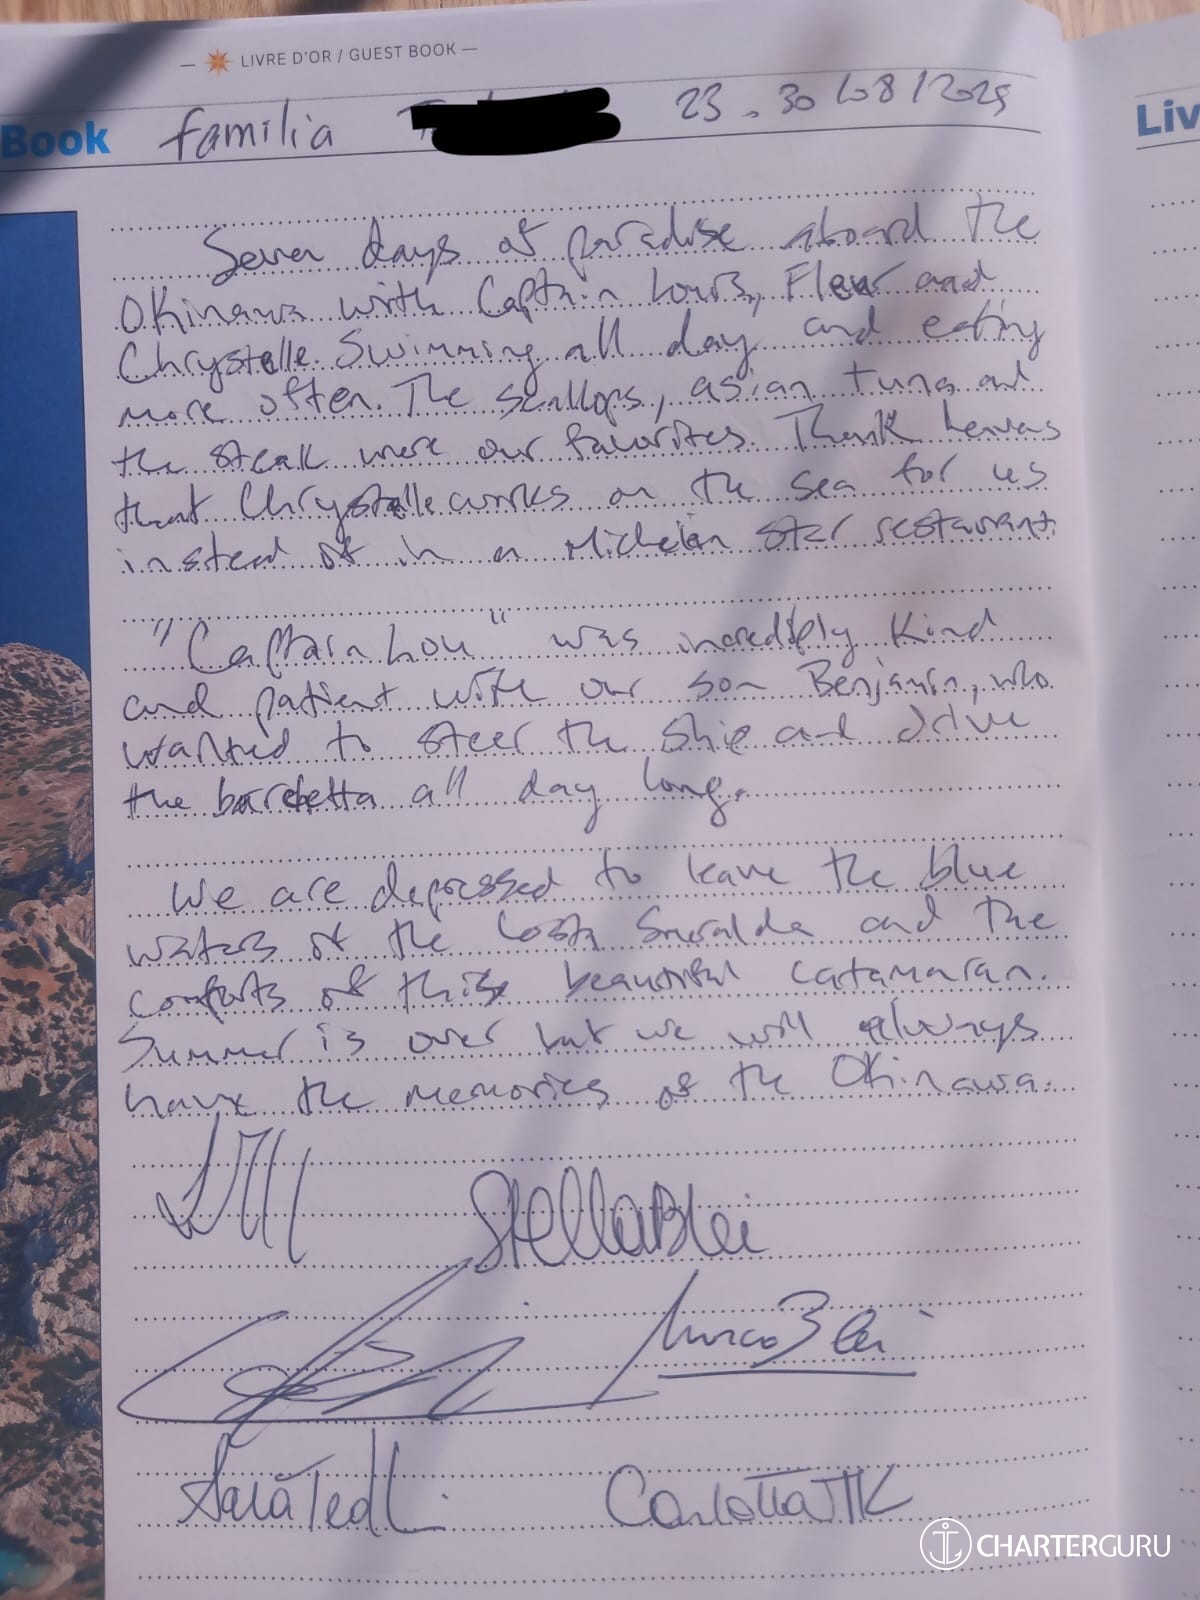 — LIVRE D'OR / GUEST BOOK —
Book
Liv
familia 23.30/08/2025
Seven days of paradise aboard the
Okinawa with Captain Louis, Fleur and
Chrystelle. Swimming all day and eating
more often. The scallops, asian tuna and
the steak were our favorites. Thank heavens
that Chrystelle works on the sea for us
instead of in a Michelin star restaurant.
"Captain Lou" was incredibly kind
and patient with our son Benjamin, who
wanted to steer the ship and drive
the barchetta all day long.
We are depressed to leave the blue
waters of the Costa Smeralda and the
comforts of this beautiful catamaran.
Summer is over but we will always
have the memories of the Okinawa.
Stella Blei
Marco Blei
Sara Ted
Carlotta TTK
CHARTERGURU